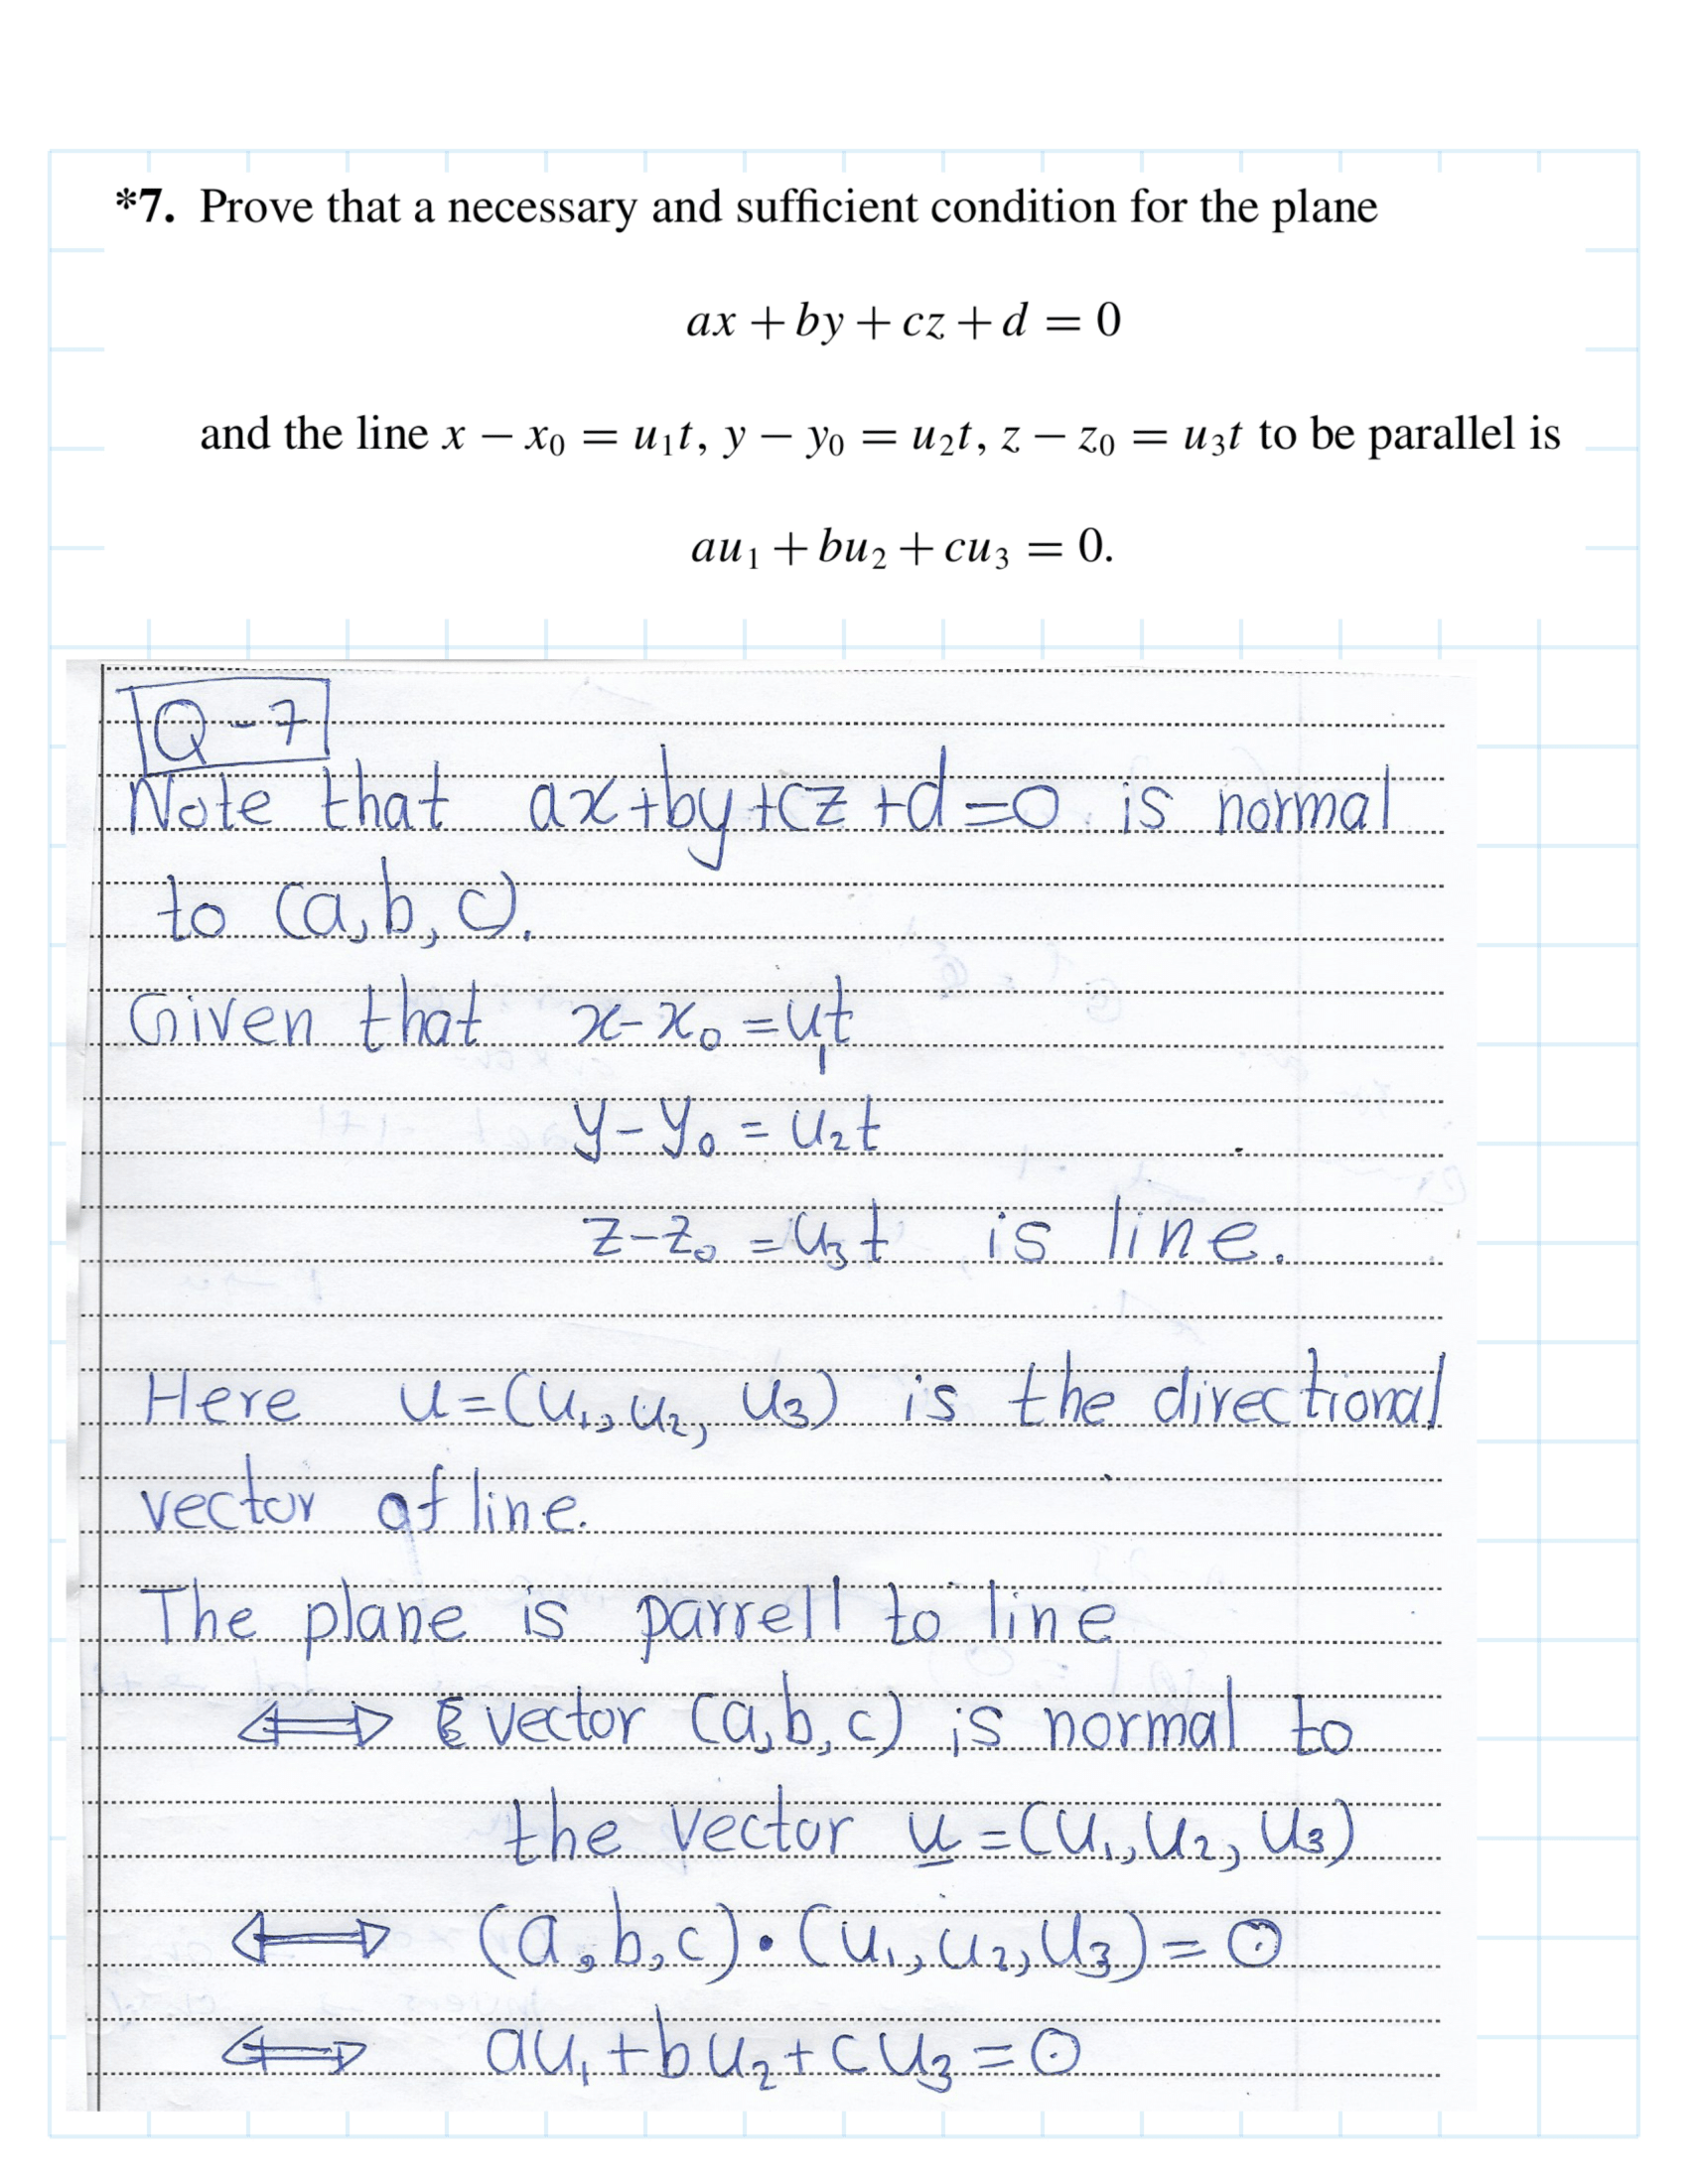 *7. Prove that a necessary and sufficient condition for the plane
ax + by + cz + d = 0
and the line x − x₀ = u₁t, y − y₀ = u₂t, z − z₀ = u₃t to be parallel is
au₁ + bu₂ + cu₃ = 0.
Q-7
Note that ax+by+cz+d=0 is normal
to (a,b,c).
Given that x-x₀ = u₁t
y-y₀ = u₂t
z-z₀ = u₃t is line.
Here u=(u₁, u₂, u₃) is the directional
vector of line.
The plane is parrell to line
⟺ vector (a,b,c) is normal to
the vector u̲ =(u₁, u₂, u₃)
⟺ (a,b,c)•(u₁, u₂, u₃)=0
⟺ au₁+bu₂+cu₃=0